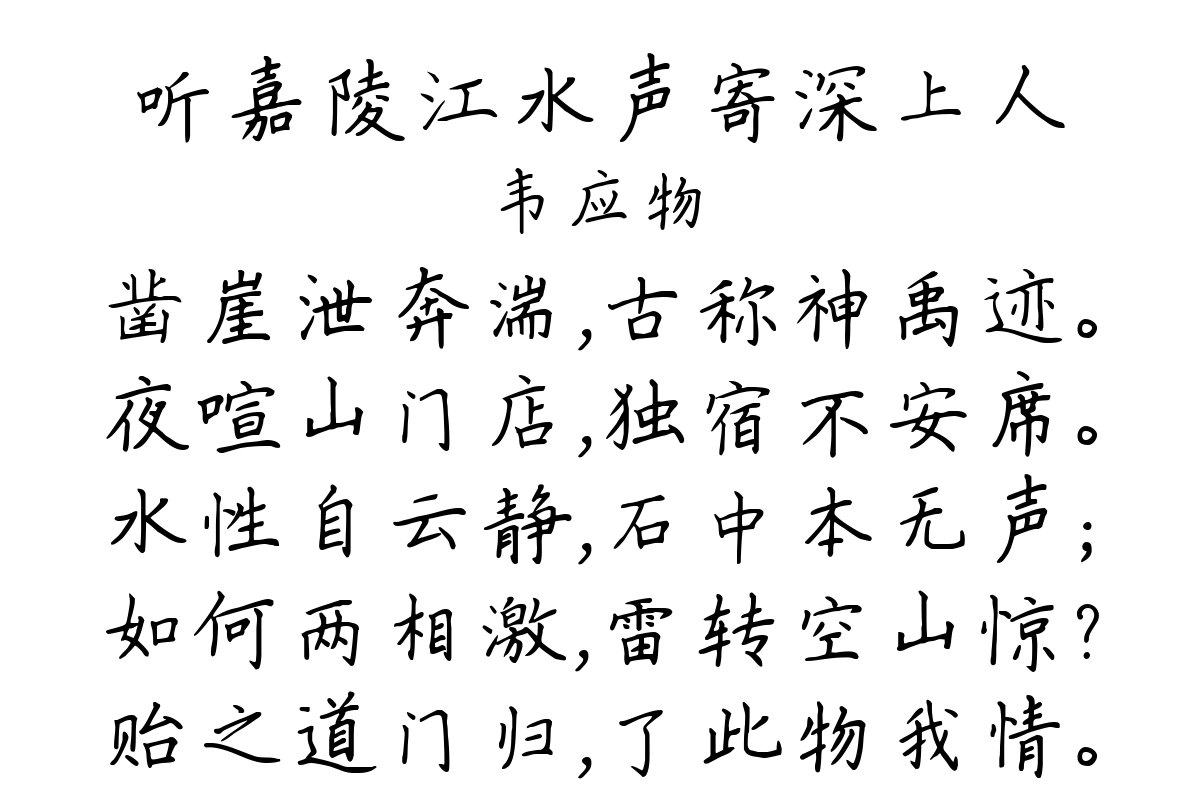 听嘉陵江水声寄深上人
韦应物
凿崖泄奔湍,古称神禹迹。
夜喧山门店,独宿不安席。
水性自云静,石中本无声;
如何两相激,雷转空山惊?
贻之道门归,了此物我情。